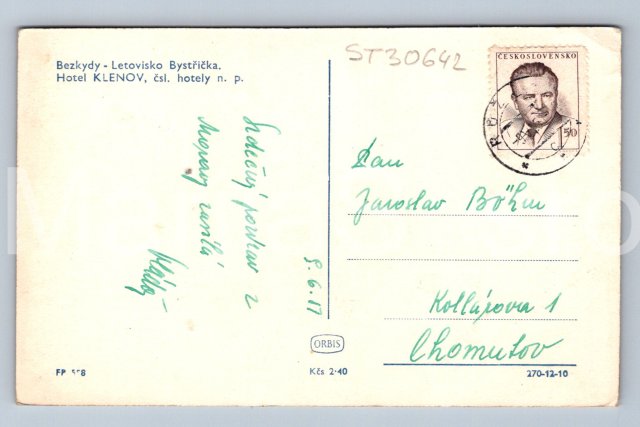 Bezkydy - Letovisko Bystřička.
Hotel KLENOV, čsl. hotely n. p.
ST30642
ČESKOSLOVENSKO
50
Srdečný pozdrav z
Moravy zasílá
Pan
Jaroslav Böhm
Kollárova 1
Chomutov
ORBIS
Kčs 2·40
270-12-10